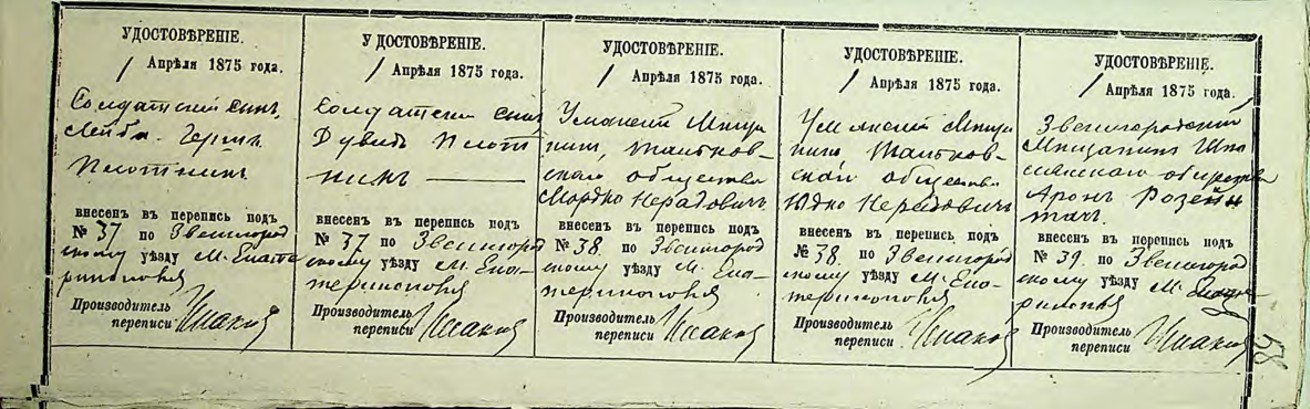 УДОСТОВѢРЕНІЕ.
1 Апрѣля 1875 года.
Солдатскій сынъ,
Лейба Гершъ
Плотникъ
внесенъ въ перепись подъ
№ 37 по Звенигород
скому уѣзду М. Екате
ринополя
Производитель
переписи
УДОСТОВѢРЕНІЕ.
1 Апрѣля 1875 года.
Солдатскій сынъ
Дувидъ Плот
никъ
внесенъ въ перепись подъ
№ 37 по Звенигород
скому уѣзду М. Ека-
теринополя
Производитель
переписи
УДОСТОВѢРЕНІЕ.
1 Апрѣля 1875 года.
Уманскій Мѣща
нинъ, Тальнов-
скаго общества
Мордко Нерадовичъ
внесенъ въ перепись подъ
№ 38. по Звенигород
скому уѣзду М. Ека-
теринополя
Производитель
переписи
УДОСТОВѢРЕНІЕ.
1 Апрѣля 1875 года.
Уманскій Мѣща
нинъ, Тальнов-
скаго общества
Юдко Нерадовичъ
внесенъ въ перепись подъ
№ 38. по Звенигород
скому уѣзду М. Ека-
теринополя
Производитель
переписи
УДОСТОВѢРЕНІЕ.
1 Апрѣля 1875 года.
Звенигородскій
Мѣщанинъ Шпо
лянскаго общества
Аронъ
внесенъ въ перепись подъ
№ 39. по Звенигород
скому уѣзду М. Екате
ринополя
Производитель
переписи
58